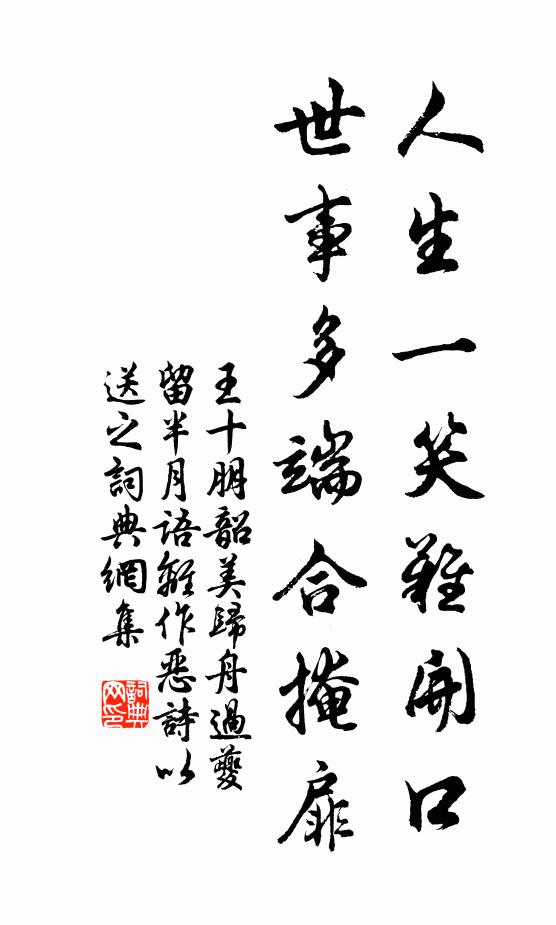 人生一笑難開口
世事多端合掩扉
王十朋韶美歸舟過夔
留半月語離作惡詩以
送之詞典網集
詞典
网印